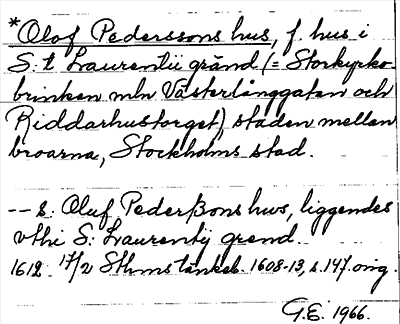 *Olof Pederssons hus, f. hus i
S:t Laurentii gränd (= Storkyrko-
brinken mln Västerlånggatan och
Riddarhustorget) staden mellan
broarna, Stockholms stad.
-- s. Oluf Pederßons hws, liggendes
vthi S. Laurentij grend.
1612 17/2 Sthms tänkeb. 1608-13, s. 147 orig.
G.E. 1966.